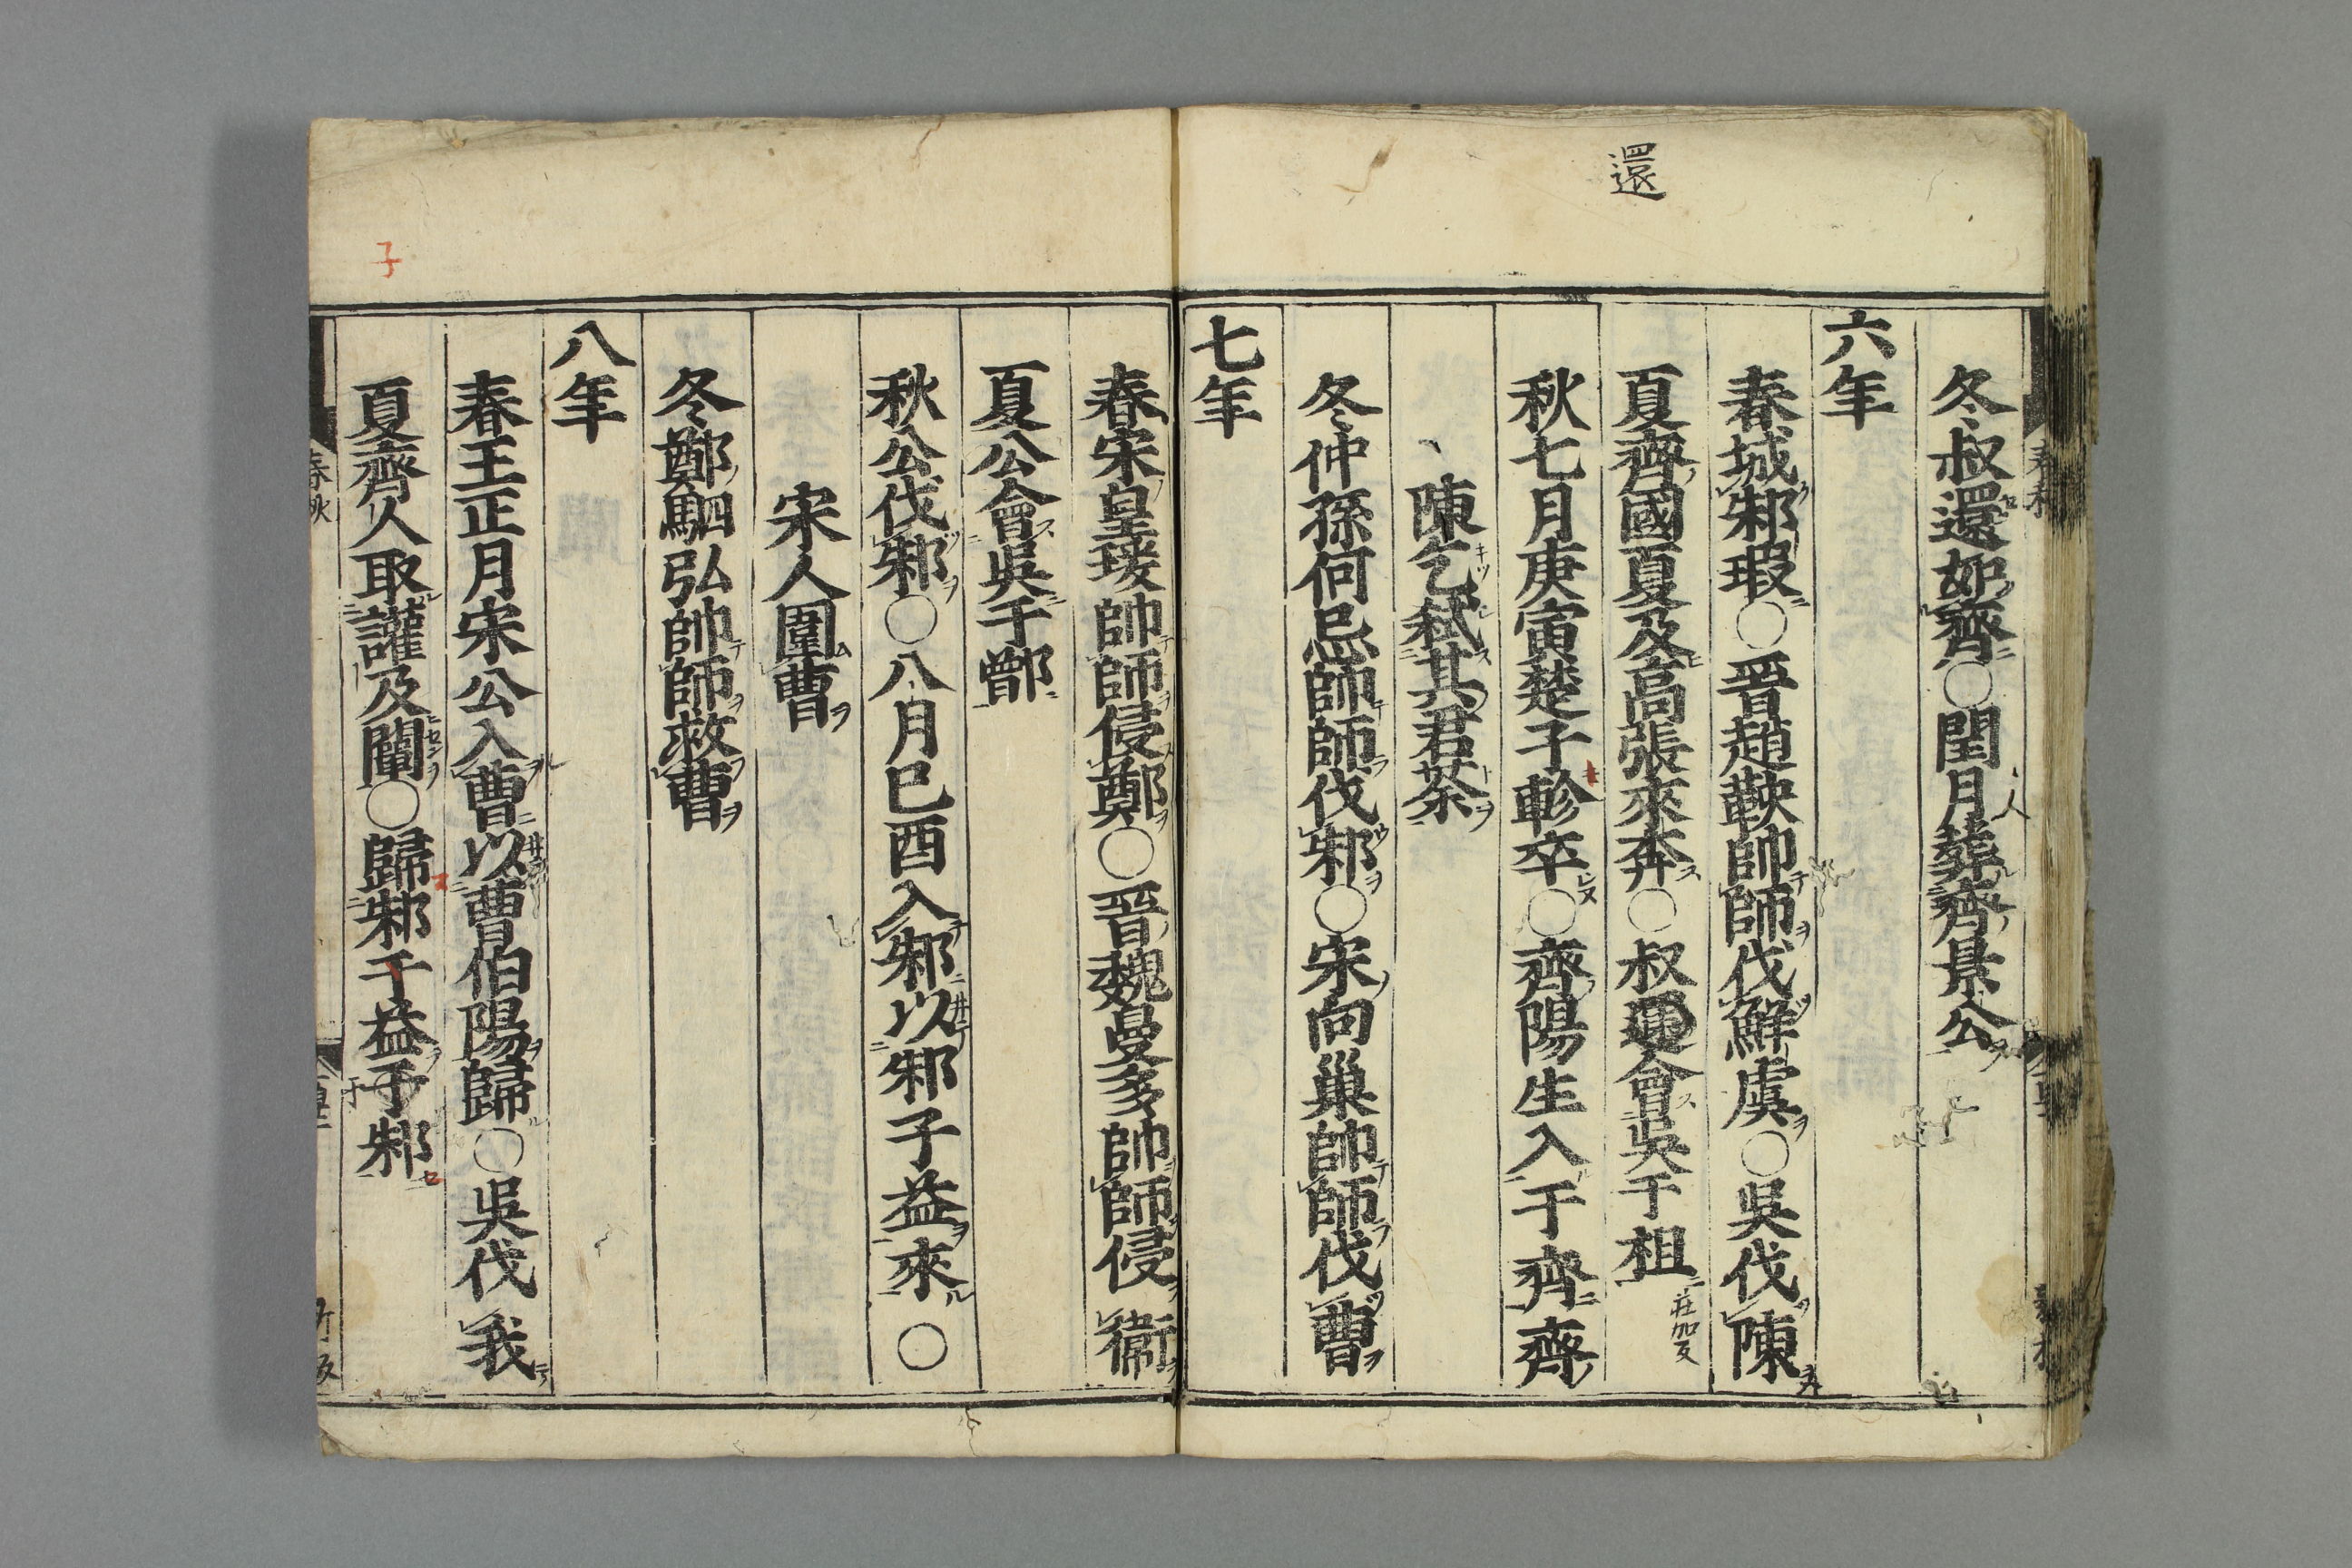 還
冬叔還如齊○閏月葬齊景公
六年
春城邾瑕○晉趙鞅帥師伐鮮虞○吳伐陳
夏齊國夏及高張來奔○叔運會吳于柤
莊加反
秋七月庚寅楚子軫卒○齊陽生入于齊齊
陳乞弑其君荼
冬仲孫何忌帥師伐邾○宋向巢帥師伐曹
七年
春宋皇瑗帥師侵鄭○晉魏曼多帥師侵衛
夏公會吳于鄫
秋公伐邾○八月巳酉入邾以邾子益來○
宋人圍曹
冬鄭駟弘帥師救曹
八年
春王正月宋公入曹以曹伯陽歸○吳伐我
子
夏齊人取讙及闡○歸邾子益于邾
春秋